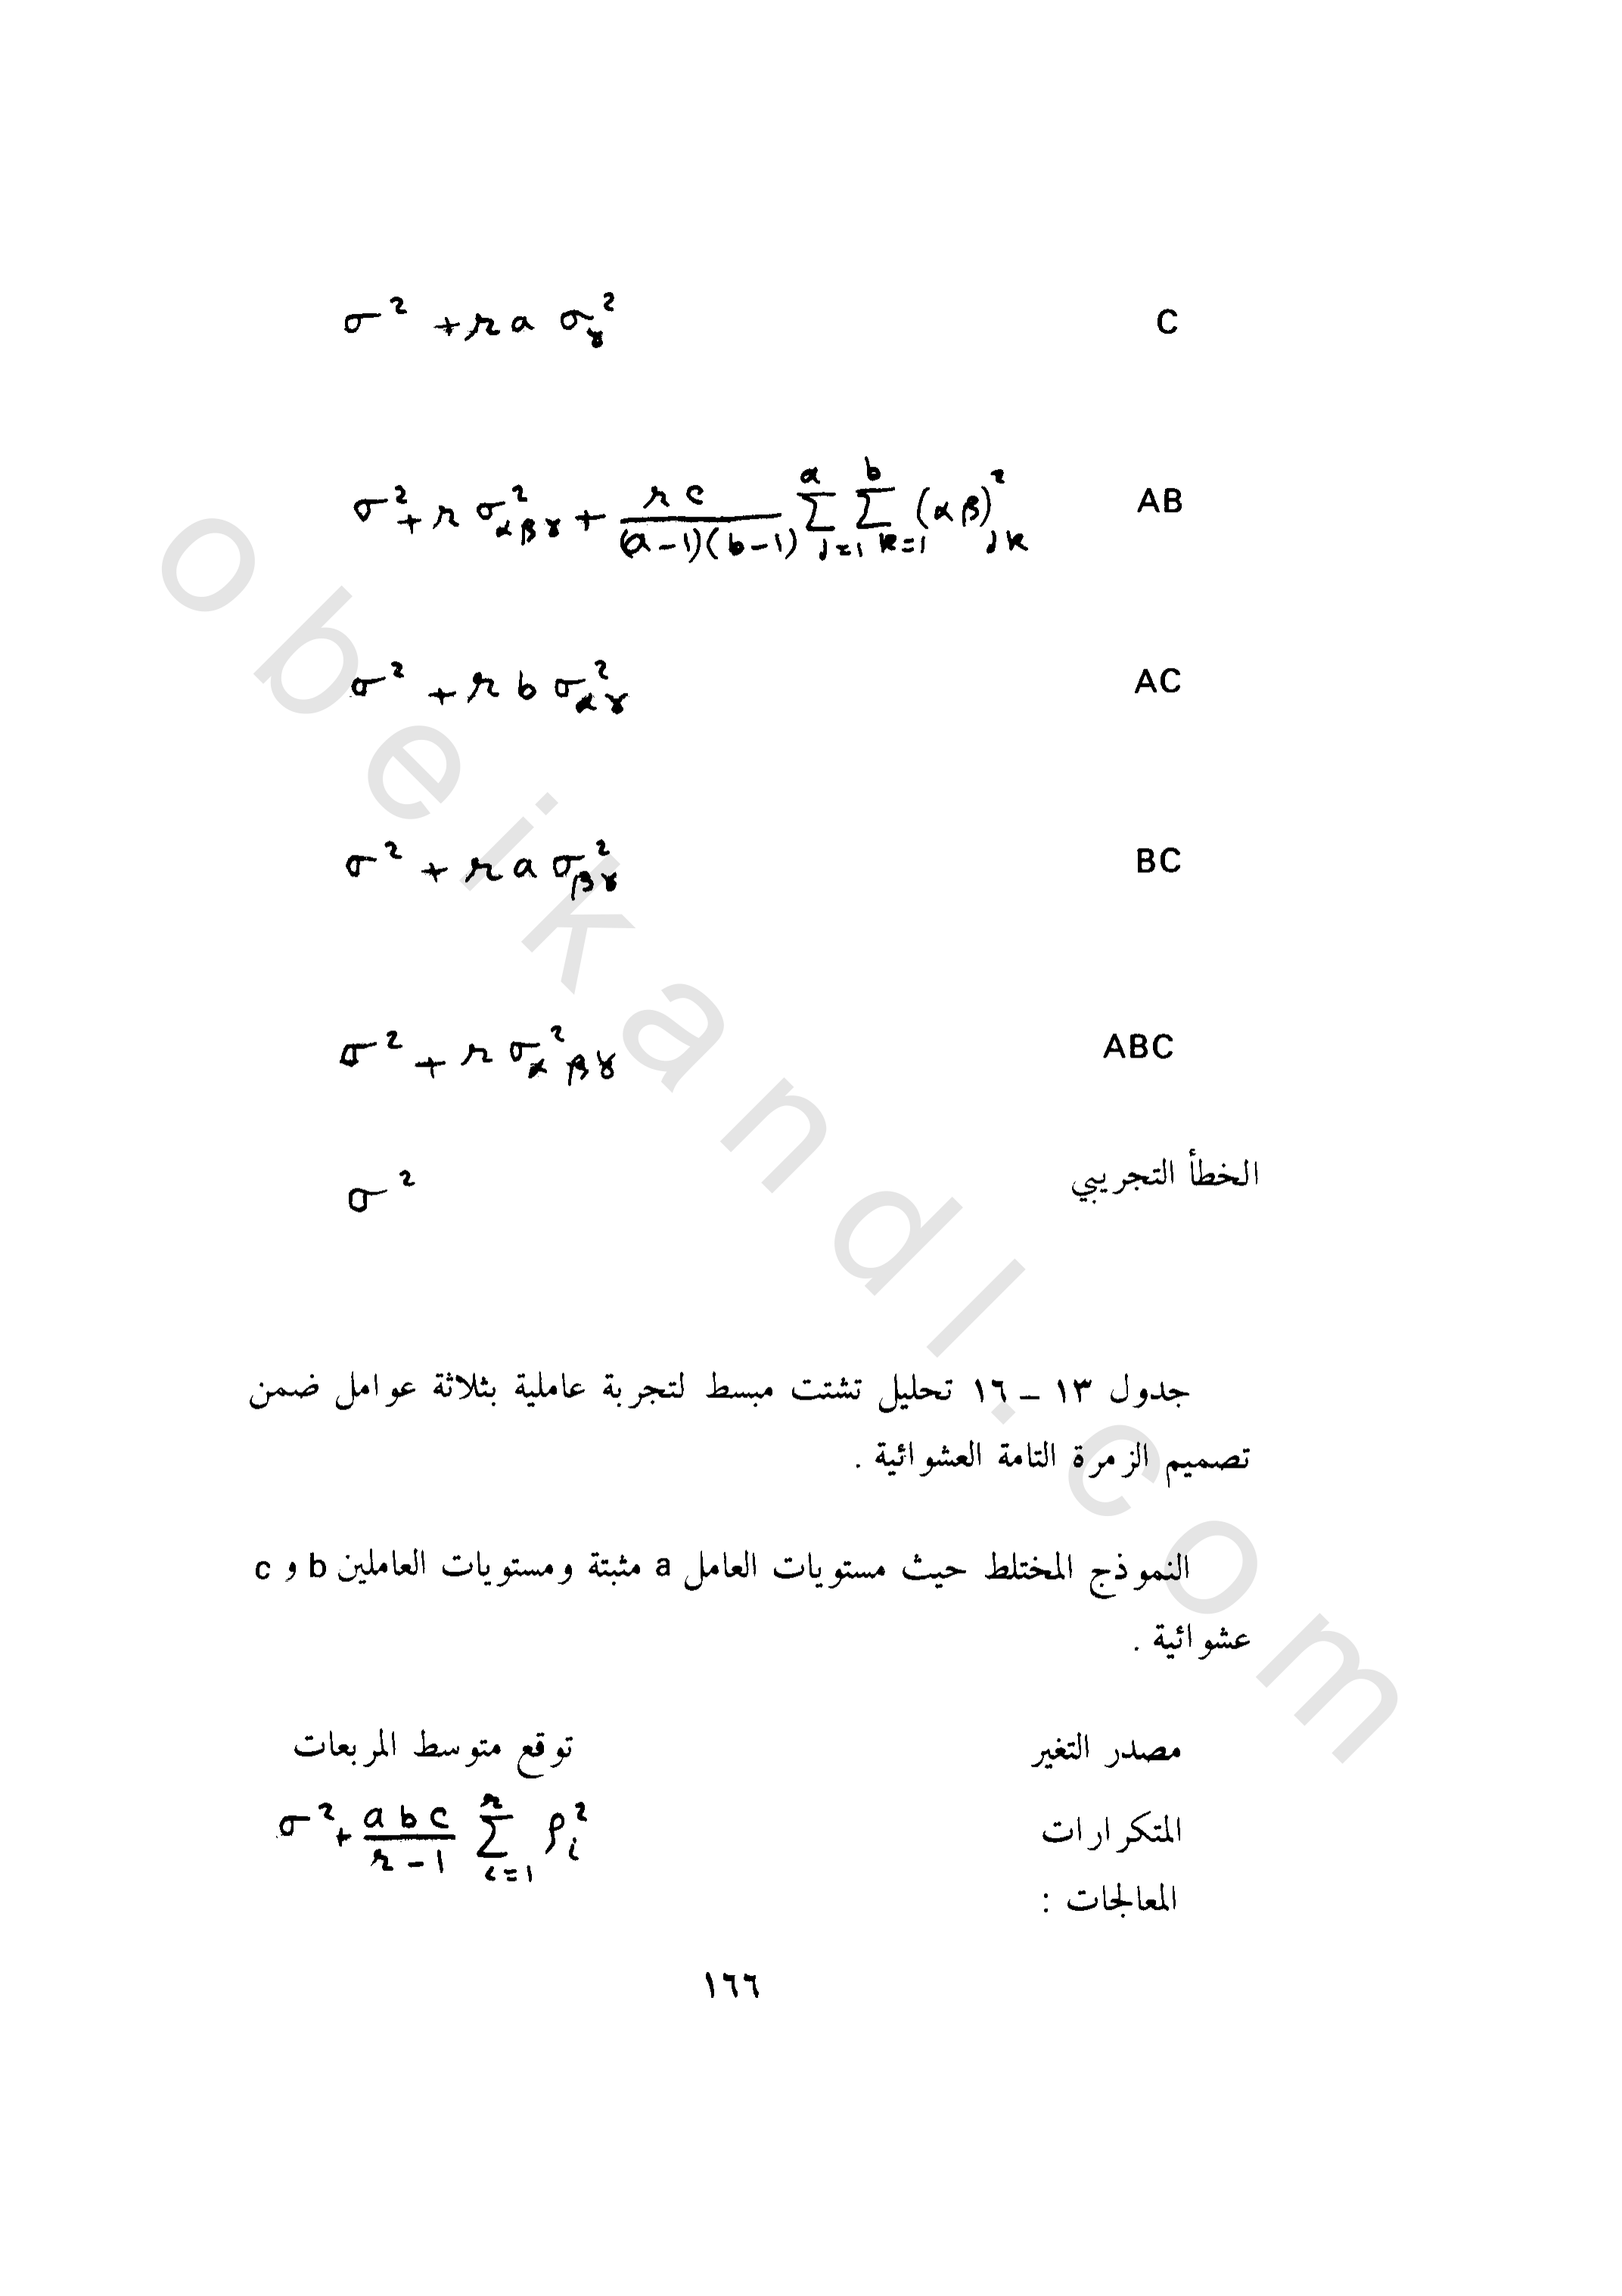 C σ² + r a σ²_γ
AB σ² + r σ²_αβγ + \frac{r c}{(a-1)(b-1)} \sum_{j=1}^{a} \sum_{k=1}^{b} (αβ)²_{jk}
AC σ² + r b σ²_αγ
BC σ² + r a σ²_βγ
ABC σ² + r σ²_αβγ
الخطأ التجريبي σ²
جدول ١٣ – ١٦ تحليل تشتت مبسط لتجربة عاملية بثلاثة عوامل ضمن
تصميم الزمرة التامة العشوائية .
النموذج المختلط حيث مستويات العامل a مثبتة ومستويات العاملين b و c
عشوائية .
مصدر التغير توقع متوسط المربعات
المتكرارات σ² + \frac{abc}{r-1} \sum_{i=1}^{r} ρ²_i
المعالجات :
١٦٦
obeikandl.com